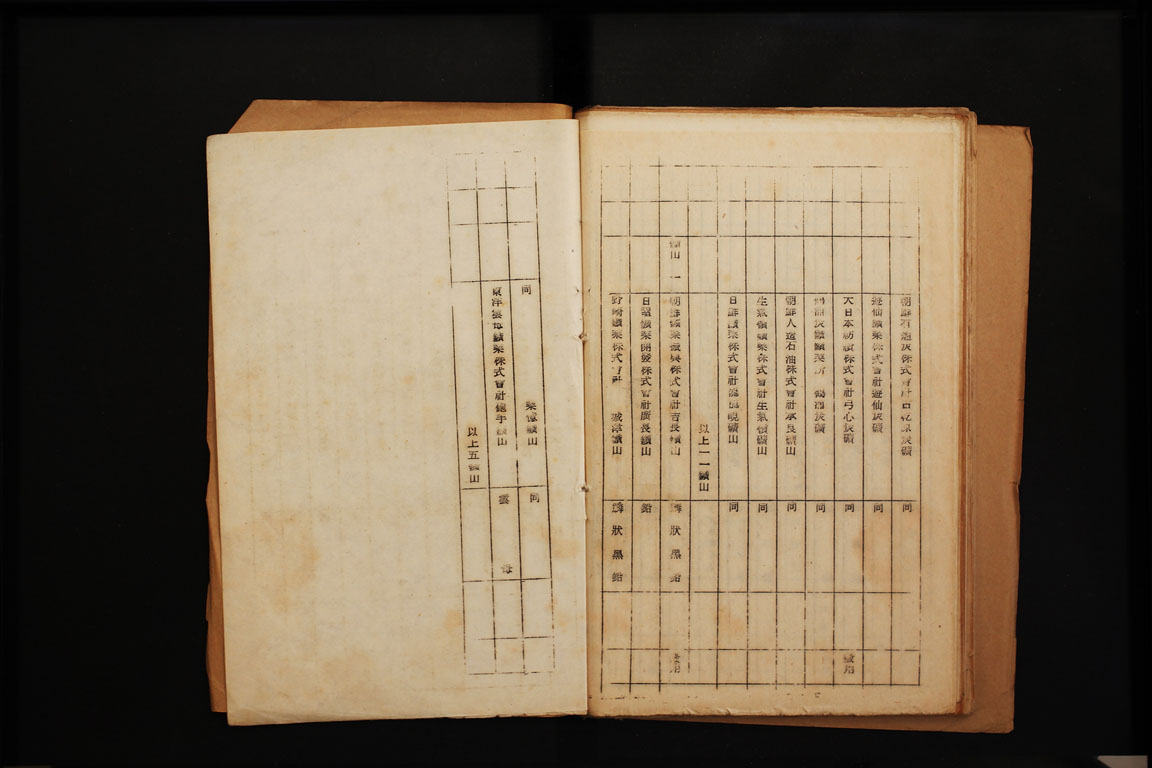 朝鮮有煙炭株式會社古乾原炭礦 同
遊仙鑛業株式會社遊仙炭礦 同
大日本紡績株式會社弓心炭礦 同 徵用
鑛業所 炭礦 同
朝鮮人造石油株式會社永安鑛山 同
生氣嶺鑛業株式會社生氣嶺鑛山 同
日鮮鑛業株式會社 鑛山 同
以上一一鑛山
鑛山 一 朝鮮鑛業振興株式會社吉長鑛山 鱗狀黑鉛
日窒鑛業開發株式會社廣長鑛山 鉛
野崎鑛業株式會社 城津鑛山 鱗狀黑鉛
同 樂億鑛山 同
東洋雲母鑛業株式會社 鑛山 雲母
以上五鑛山